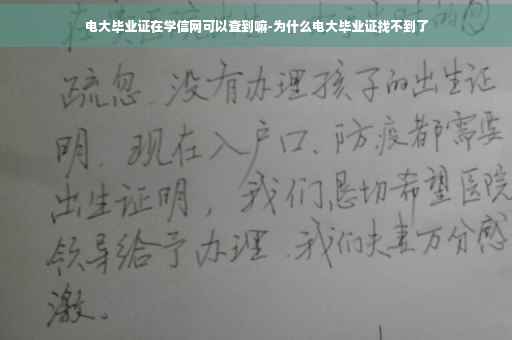 电大毕业证在学信网可以查到嘛-为什么电大毕业证找不到了
疏忽、没有办理孩子的出生证
明。现在入户口、防疫都需要
出生证明，我们恳切希望医院
领导给予办理、我们夫妻万分感
激。